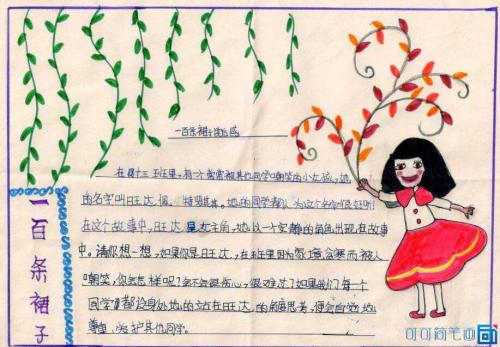 一百条裙子读后感
在第十三班里,有一个常常被其他同学嘲笑的小女孩,她
的名字叫旺达·佩特罗斯基。她的同学都认为这个名字很好听!
在这个故事中,旺达是女主角,她以一个安静的角色出现在故事
中。请你想一想,如果你是旺达,在班里因为家境贫寒而被人
嘲笑,你会怎样呢?会不会很伤心,很难过?如果我们每一个
同学都设身处地的站在旺达的角度思考,便会自觉地
尊重、爱护其他同学。
一百条裙子
可可简笔画